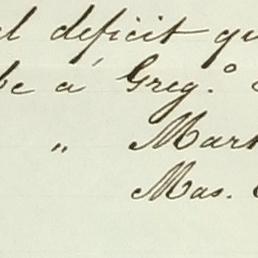 el deficit qu
be á Greg.º
" Mart
Mas.